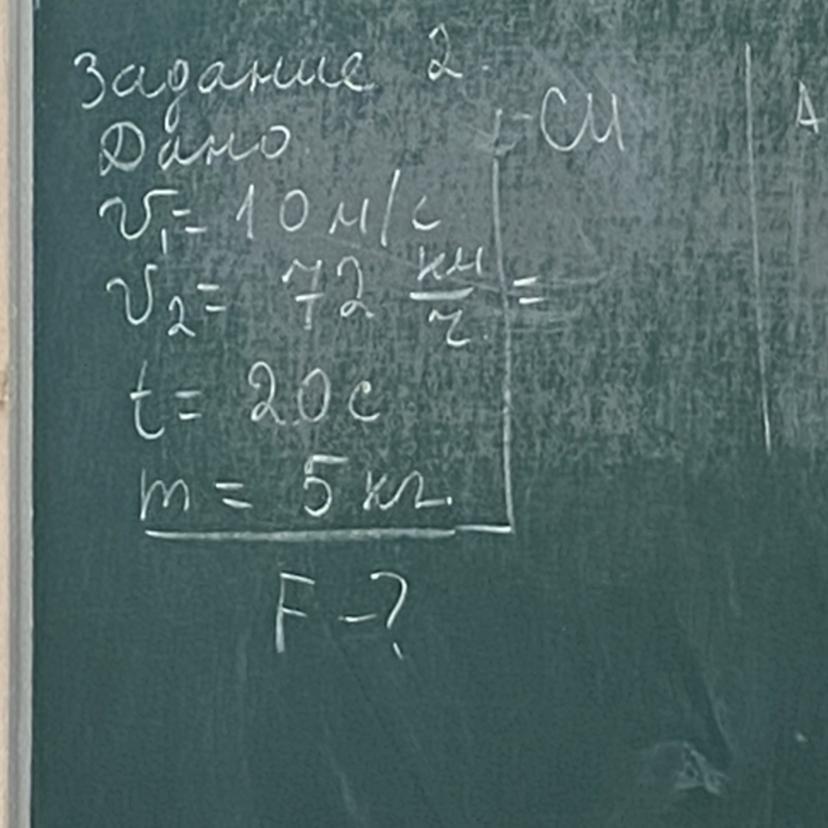 Задание 2.
Дано
СИ
А
v₁ = 10 м/с
v₂ = 72 км/ч =
t = 20 с
m = 5 кг.
F - ?